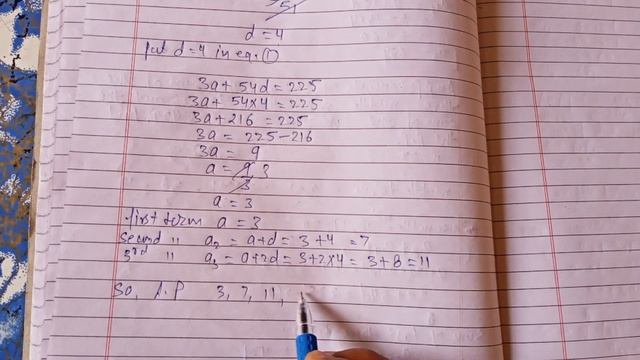 51
d = 4
put d = 4 in eq. ①
3a + 54d = 225
3a + 54×4 = 225
3a + 216 = 225
3a = 225 - 216
3a = 9
a = 9 3
3
a = 3
first term a = 3
second " a₂ = a+d = 3+4 = 7
3rd " a₃ = a+2d = 3+2×4 = 3+8 = 11
So, A.P 3, 7, 11,